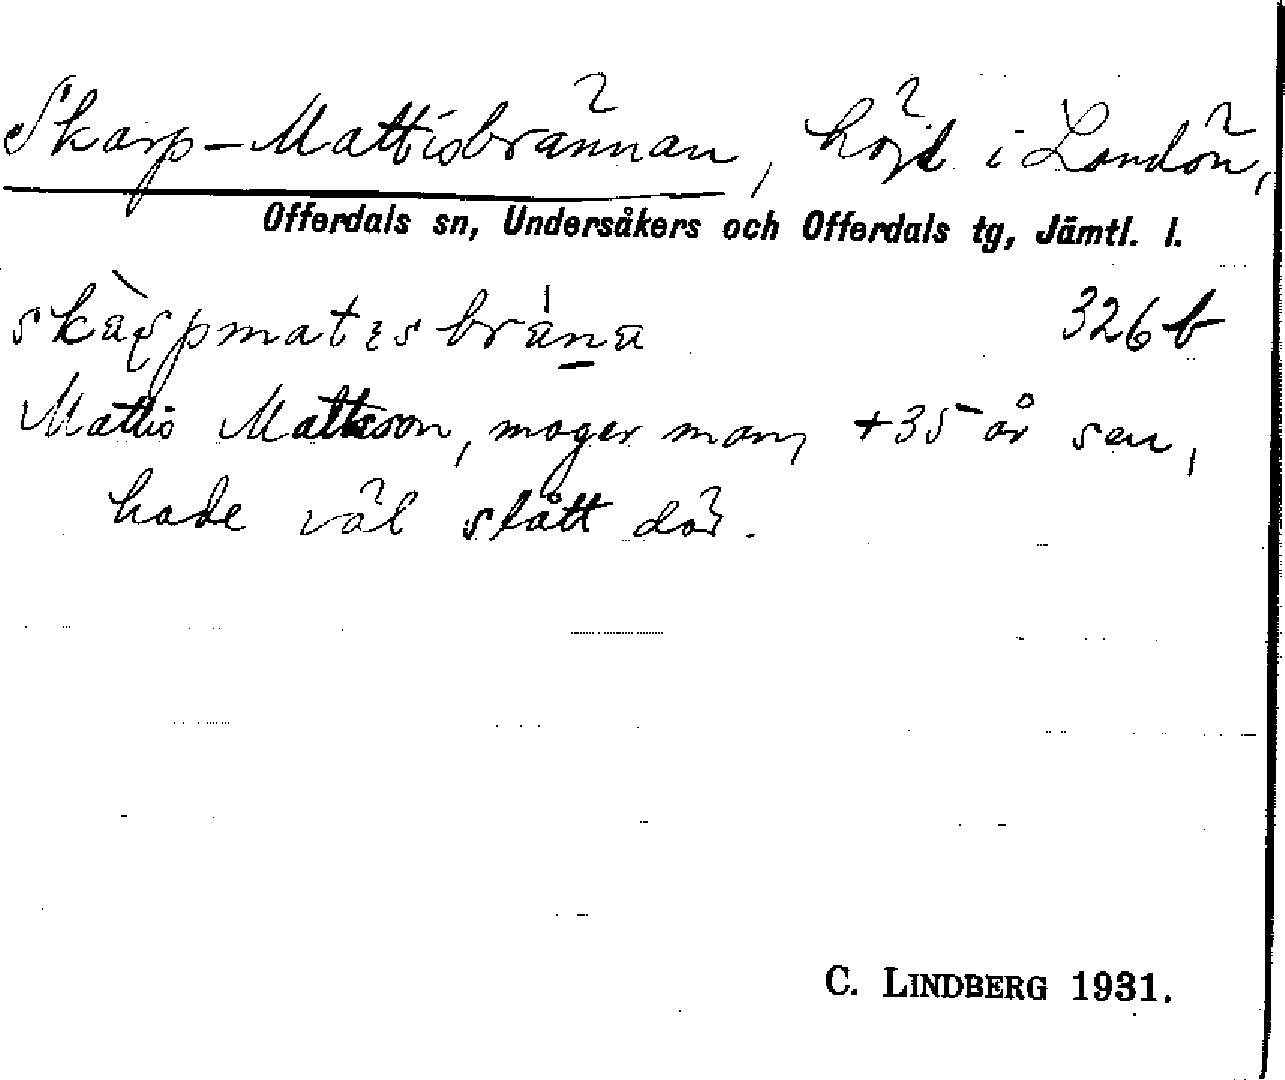 Skarp-Mattisbrännan, höjd i Landön,
Offerdals sn, Undersåkers och Offerdals tg, Jämtl. l.
326 b
Mattis Mattsson, mager man, +35 år sen,
hade väl slått där.
C. LINDBERG 1931.